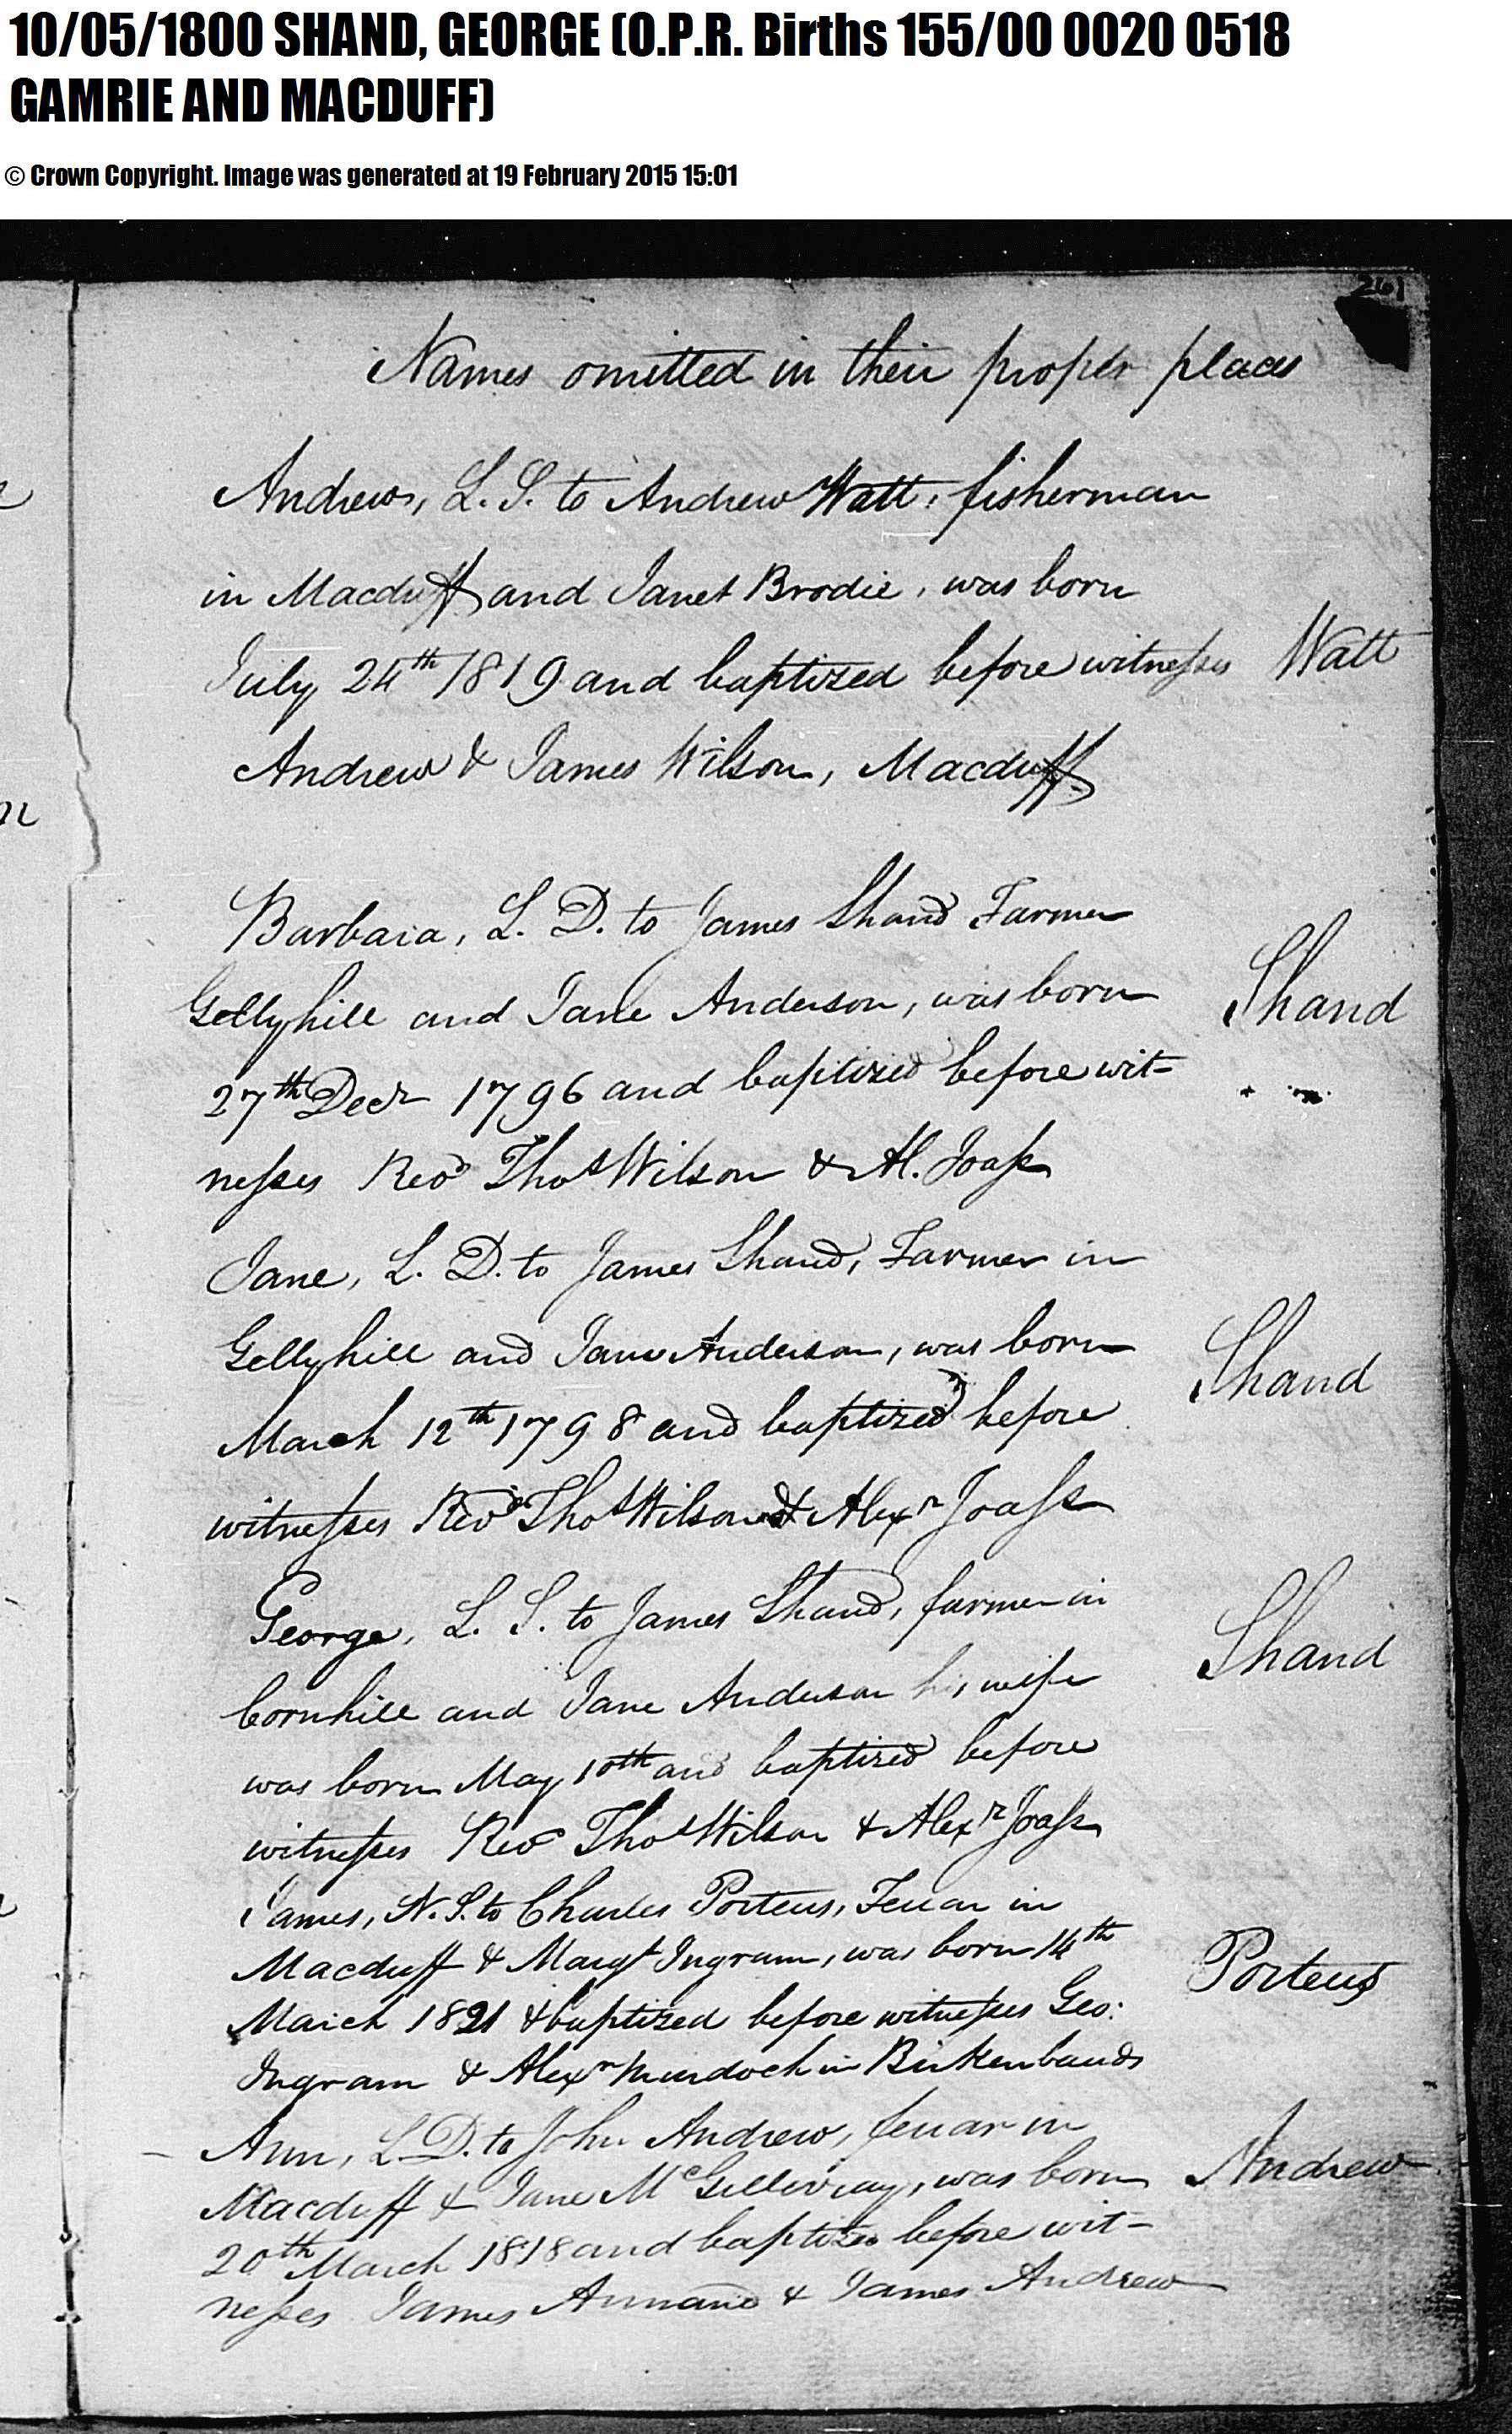 10/05/1800 SHAND, GEORGE (O.P.R. Births 155/00 0020 0518
GAMRIE AND MACDUFF)
© Crown Copyright. Image was generated at 19 February 2015 15:01
261
Names omitted in their proper places
Andrew, L. S. to Andrew Watt, fisherman
in Macduff and Janet Brodie, was born
July 24th 1819 and baptized before witnesses
Watt
Andrew & James Wilson, Macduff
Barbara, L. D. to James Shand Farmer
Gellyhill and Jane Anderson, was born
Shand
27th Decr 1796 and baptized before wit-
nesses Revd Thos Wilson & Al. Joass
Jane, L. D. to James Shand, Farmer in
Gellyhill and Jane Anderson, was born
Shand
March 12th 1798 and baptized before
witnesses Revd Thos Wilson & Alexr Joass
George, L. S. to James Shand, farmer in
Shand
Cornhill and Jane Anderson his wife
was born May 10th and baptized before
witnesses Revd Thos Wilson & Alexr Joass
James, N. S. to Charles Porteus, Feuar in
Macduff & Margt Ingram, was born 14th
Porteus
March 1821 & baptized before witnesses Geo:
Ingram & Alexr Murdoch in Birkenbauds
Ann, L. D. to John Andrew, feuar in
Macduff & Jane McGillivray, was born
Andrew
20th March 1818 and baptized before wit-
nesses James Annand & James Andrew